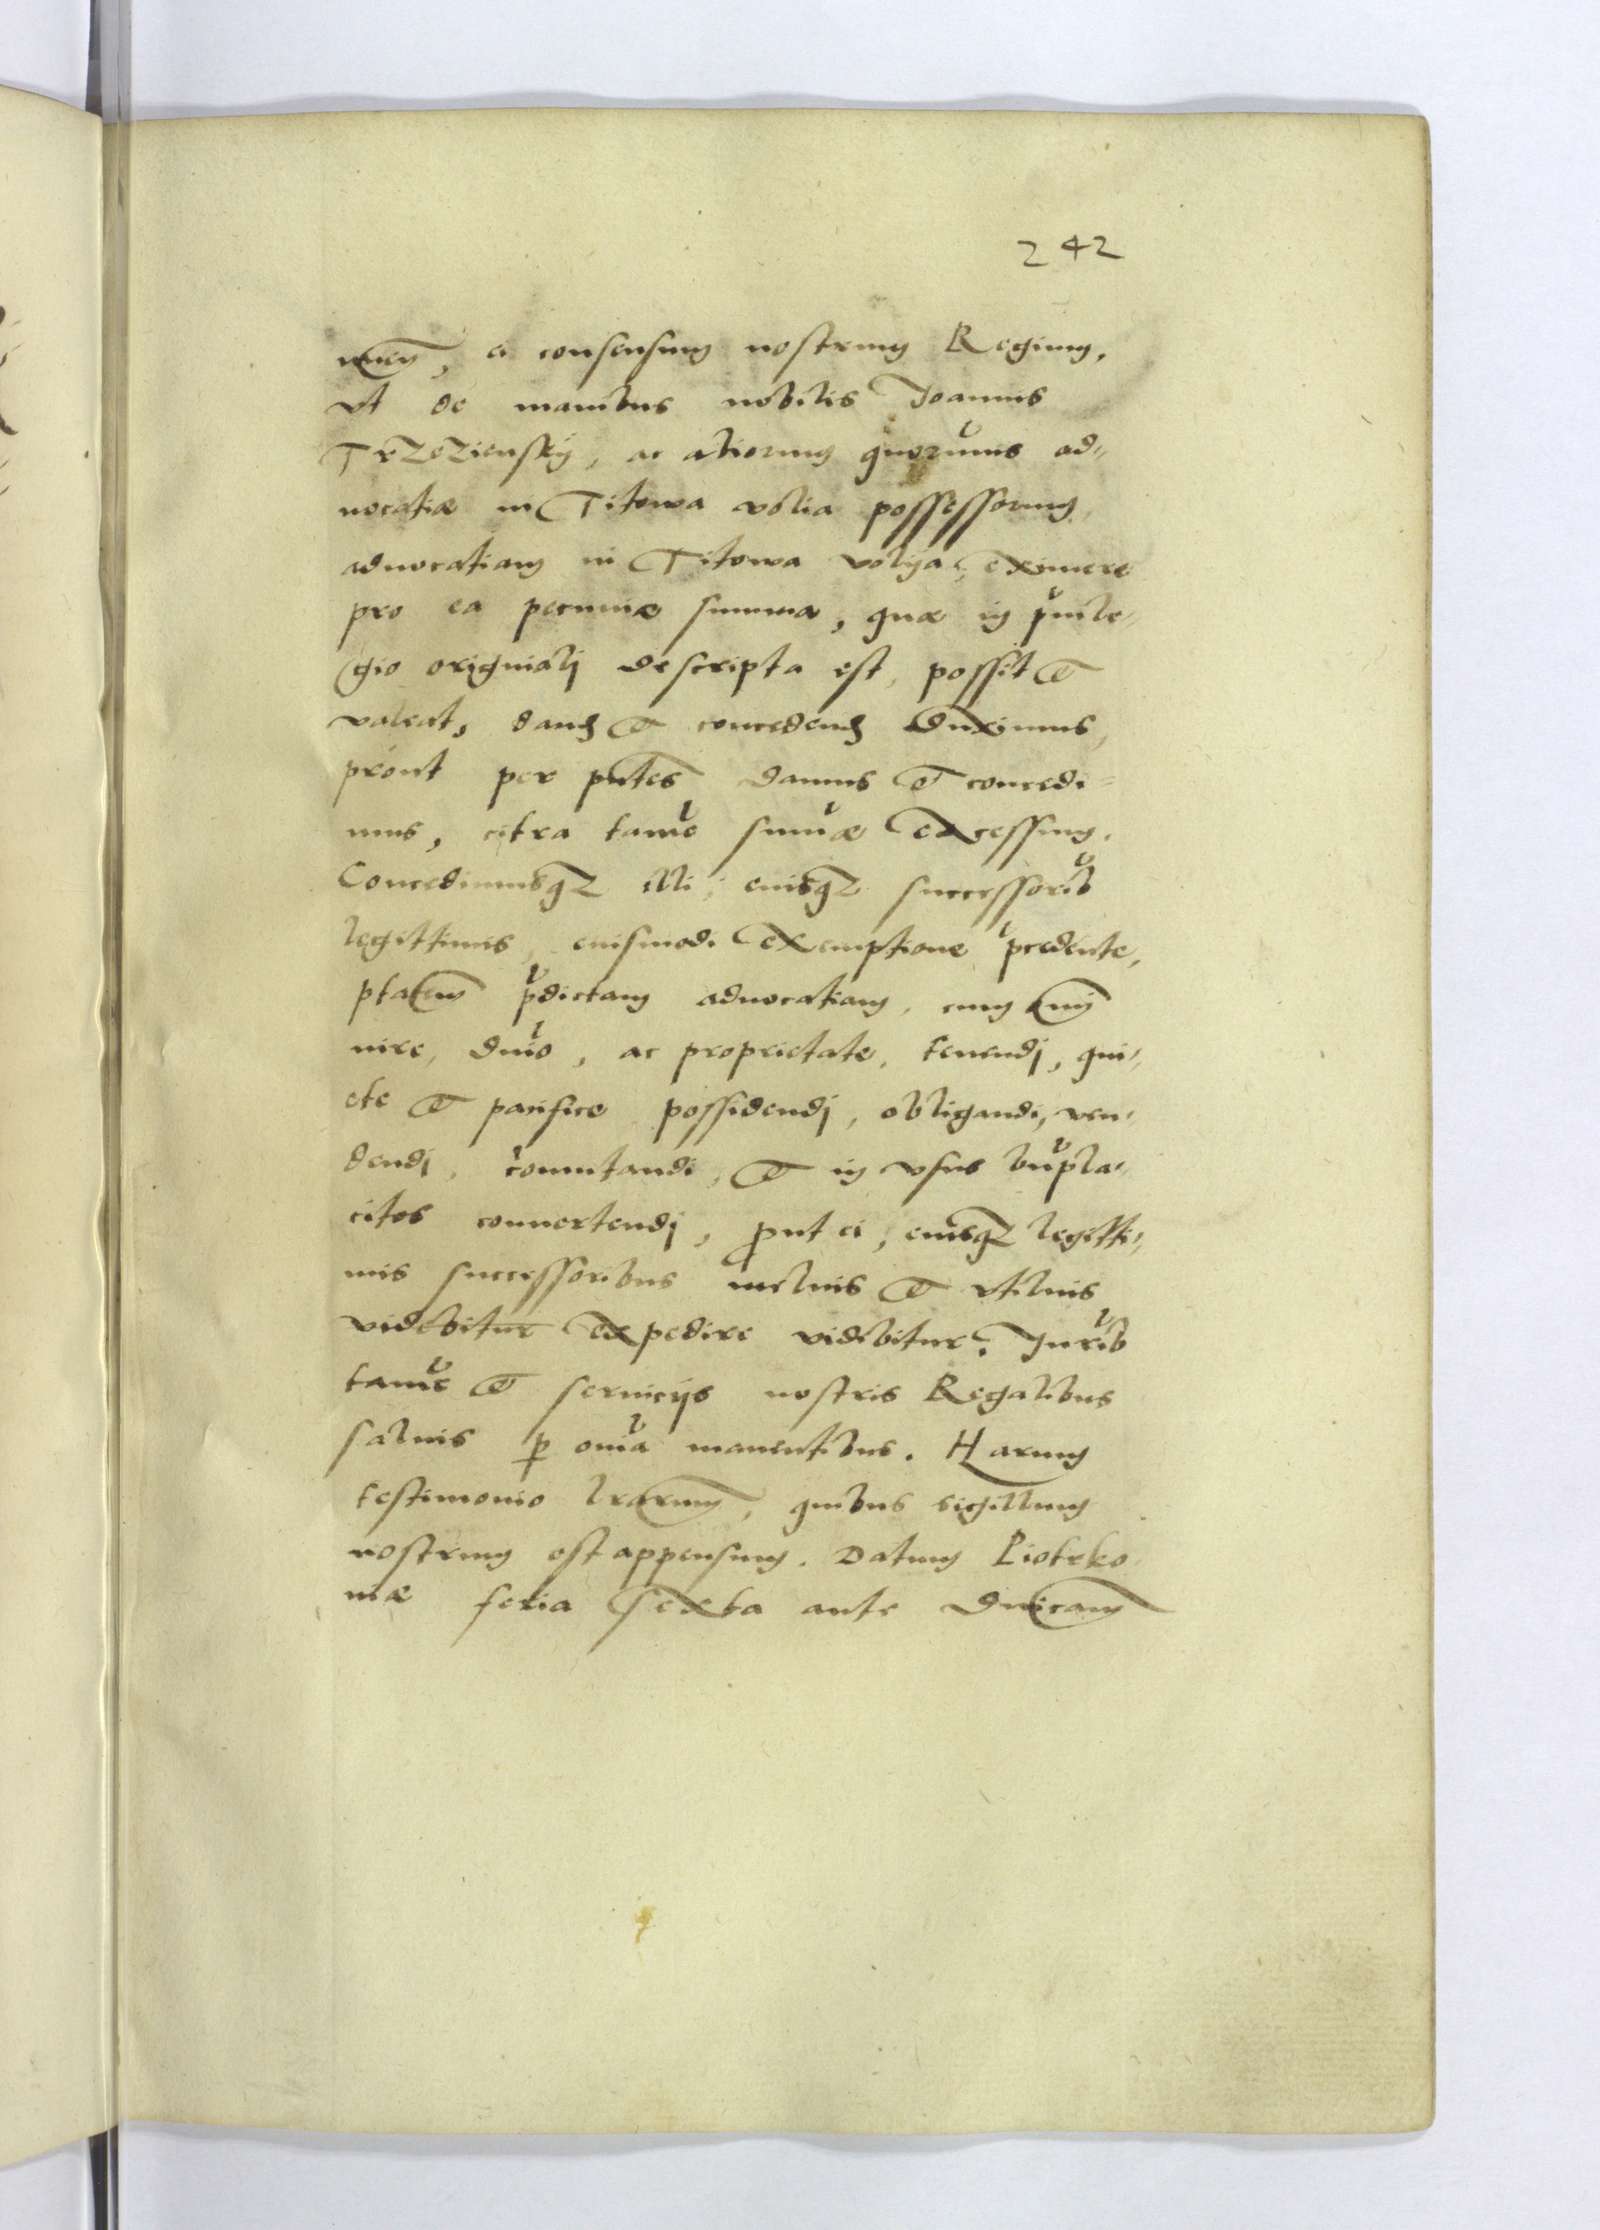 242
ei consensum nostrum Regium,
vt de manibus nobilis Joannis
Trzeziensky, ac aliorum quorumvis ad-
uocatiæ in Titowa volia possessorum,
aduocatiam in Titowa volya, eximere
pro ea pecuniæ summa, quæ in priuile-
gio originali descripta est, possit et
valeat, dand et concedend duximus,
prout per pntes damus et concedi-
mus, citra tame sumæ excessum.
Concedimusq illi, eiusq successorib
legittimis, eiusmodi exemptione precedente,
ptatem pdictam aduocatiam, cum omni
iure, dnio, ac proprietate, tenendi, qui-
ete et pacifice possidendi, obligandi, ven-
dendi, comutandi, et in vsus bnpla-
citos conuertendi, prout ei, eiusq legitti-
mis successoribus melius et vtilius
videbitur expedire videbitur. Jurib
tame et seruicijs nostris Regalibus
saluis p oma manentibus. Harum
testimonio lrarum, quibus sigillum
nostrum est appensum. Datum Piotrko-
uiæ feria sexta ante Dnicam